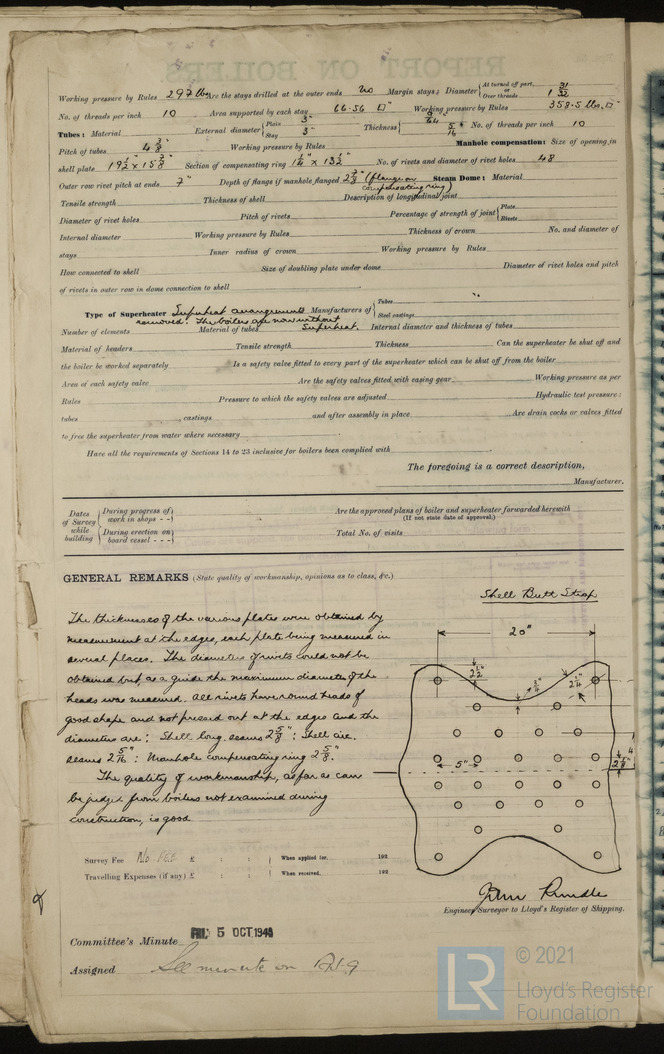 REPORT ON BOILERS
Working pressure by Rules 297 lbs Are the stays drilled at the outer ends No Margin stays: Diameter { At turned off part, or Over threads 1 31/32
No. of threads per inch 10 Area supported by each stay 66.56 □" Working pressure by Rules 358.5 lbs. □"
Tubes: Material External diameter { Plain 3" Stay 3" Thickness { 9/64 5/16 No. of threads per inch 10
Pitch of tubes 4 3/8 Working pressure by Rules Manhole compensation: Size of opening in
shell plate 19 1/2 x 15 3/8" Section of compensating ring 1 1/4" x 13 1/2" No. of rivets and diameter of rivet holes 48
Outer row rivet pitch at ends 7" Depth of flange if manhole flanged 2 7/8 (flange on compensating ring) Steam Dome: Material
Tensile strength Thickness of shell Description of longitudinal joint
Diameter of rivet holes Pitch of rivets Percentage of strength of joint { Plate Rivets
Internal diameter Working pressure by Rules Thickness of crown No. and diameter of
stays Inner radius of crown Working pressure by Rules
How connected to shell Size of doubling plate under dome Diameter of rivet holes and pitch
of rivets in outer row in dome connection to shell
Type of Superheater Superheat arrangements removed. The boilers are now without Superheat. Manufacturers of { Tubes Steel castings
Number of elements Material of tubes Internal diameter and thickness of tubes
Material of headers Tensile strength Thickness Can the superheater be shut off and
the boiler be worked separately Is a safety valve fitted to every part of the superheater which can be shut off from the boiler
Area of each safety valve Are the safety valves fitted with easing gear Working pressure as per
Rules Pressure to which the safety valves are adjusted Hydraulic test pressure:
tubes , castings and after assembly in place Are drain cocks or valves fitted
to free the superheater from water where necessary
Have all the requirements of Sections 14 to 23 inclusive for boilers been complied with
The foregoing is a correct description,
Manufacturer.
Dates of Survey while building { During progress of work in shops - - } Are the approved plans of boiler and superheater forwarded herewith
(If not state date of approval.)
{ During erection on board vessel - - - } Total No. of visits
GENERAL REMARKS (State quality of workmanship, opinions as to class, &c.)
Shell Butt Strap
The thicknesses of the various plates were obtained by
measurement at the edges, each plate being measured in
several places. The diameter of rivets could not be
obtained but as a guide the maximum diameter of the
heads was measured. All rivets have round heads of
good shape and not pressed out at the edges and the
diameters are: Shell long. seams 2 5/8": Shell circ.
seams 2 5/16": Manhole compensating ring 2 5/8".
The quality of workmanship, as far as can
be judged from boilers not examined during
construction, is good
20"
2 1/2"
2 1/4"
5"
2 1/8"
Survey Fee No Fee £ : : When applied for, 192
Travelling Expenses (if any) £ : : When received, 192
John Rundle
Engineer Surveyor to Lloyd's Register of Shipping.
Committee's Minute FRI. 5 OCT. 1945
Assigned See minute on
LR
© 2021
Lloyd's Register
Foundation